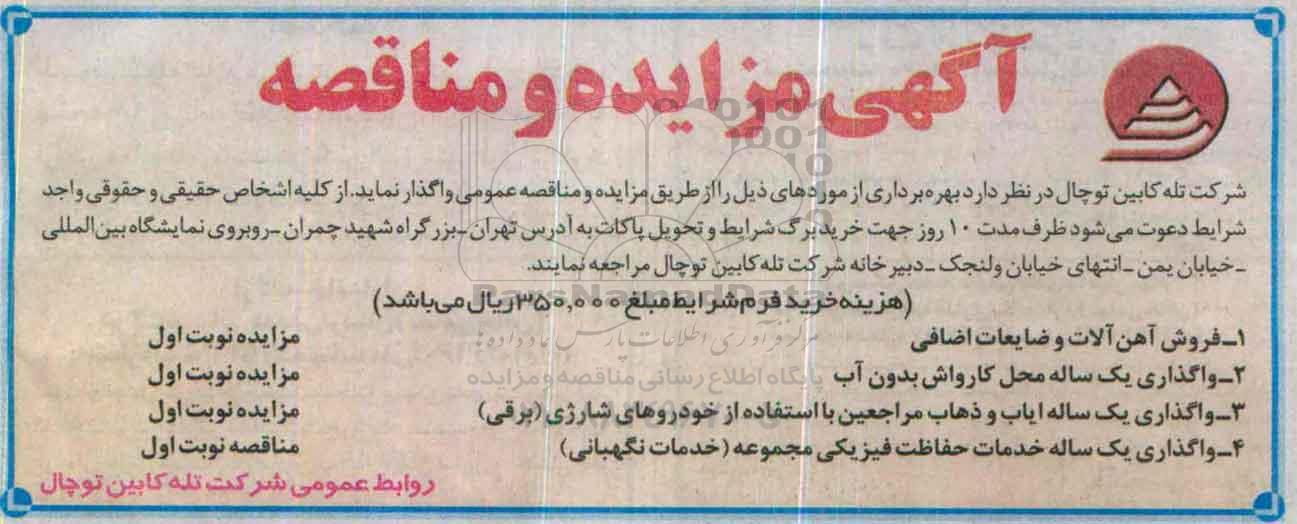 آگهی مزایده و مناقصه
شرکت تله کابین توچال در نظر دارد بهره برداری از موردهای ذیل را از طریق مزایده و مناقصه عمومی واگذار نماید. از کلیه اشخاص حقیقی و حقوقی واجد
شرایط دعوت می شود ظرف مدت ۱۰ روز جهت خرید برگ شرایط و تحویل پاکات به آدرس تهران ـ بزرگراه شهید چمران ـ روبروی نمایشگاه بین المللی
ـ خیابان یمن ـ انتهای خیابان ولنجک ـ دبیرخانه شرکت تله کابین توچال مراجعه نمایند.
(هزینه خرید فرم شرایط مبلغ ۳۵۰,۰۰۰ ریال می باشد)
۱ـ فروش آهن آلات و ضایعات اضافی مزایده نوبت اول
۲ـ واگذاری یک ساله محل کارواش بدون آب مزایده نوبت اول
۳ـ واگذاری یک ساله ایاب و ذهاب مراجعین با استفاده از خودروهای شارژی (برقی) مزایده نوبت اول
۴ـ واگذاری یک ساله خدمات حفاظت فیزیکی مجموعه (خدمات نگهبانی) مناقصه نوبت اول
روابط عمومی شرکت تله کابین توچال
ParsNamadData
مرکز فرآوری اطلاعات پارس نماد داده ها
پایگاه اطلاع رسانی مناقصه و مزایده